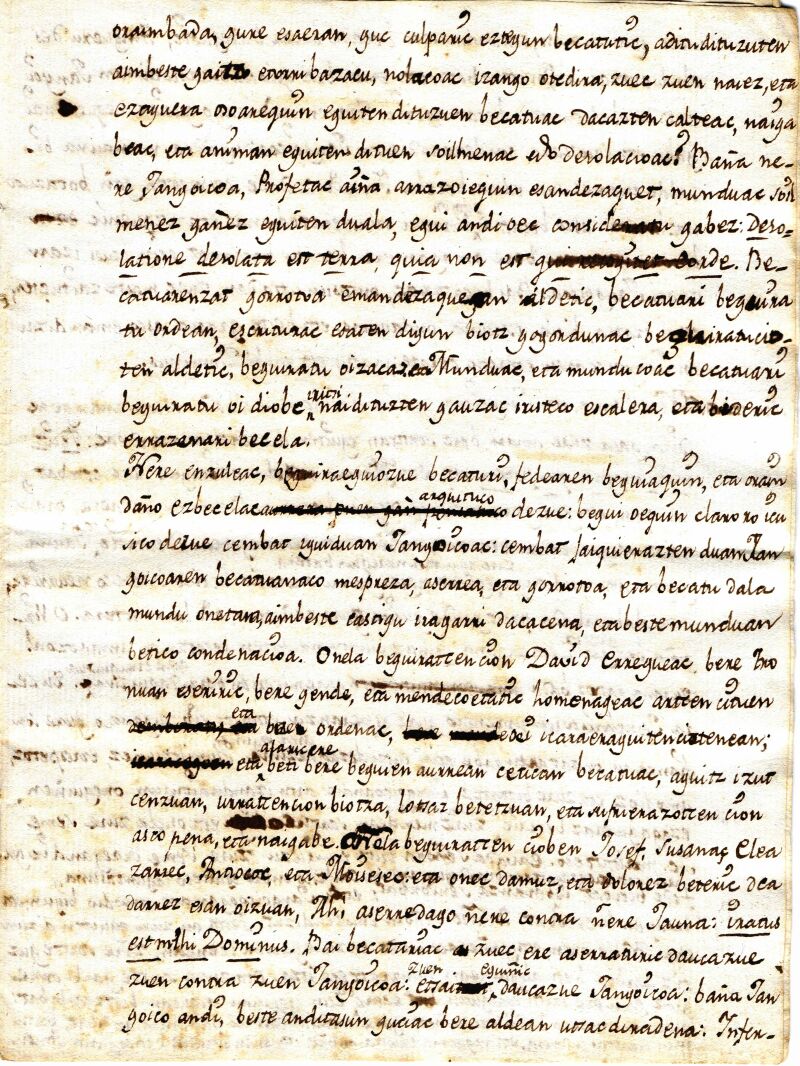 oraimbada, gure esaeran, guc culparic eztegun becatutic, aditu dituzuten
aimbeste gaitz etorri bazacu, nolacoac izango otedira, zuec zuen naiez, eta
ezaguera osoarequin eguiten dituzuen becatuac dacazten calteac, naiga
beac, eta animan eguiten dituen soilmenac edo desolacioac? Baña ne-
re Jangoicoa, Profetac aiña arrazoiequin esan dezaquet, munduac soil
menez gañez eguiten duala, egui andi oec consideratu gabez: Deso-
latione desolata est terra, quia non est qui recogitet corde. Be-
catuarenzat gorrotoa eman dizaquegun aldetic, becatuari beguira
tu ordean, escriturac esaten digun biotz gogordunac beguiratu cio-
ten aldetic, beguiratu oi zaca Munduac, eta munducoac becatuari
beguiratu oi diobe irichi nai dituzten gauzac iristeco escalera, eta bideric
errazenari becela.
Nere enzuleac, beguira eguiozue becaturi, fedearen beguiaquin, eta orain
daño ez becelaco arguituco dezue: begui oequin claroro icu
sico dezue cembat iguiduan Jangoicoac: cembat jaiquierazten duan Jan
goicoaren becatuanaco mespreza, aserrea, eta gorrotoa, eta becatu dala
mundu onetara, aimbeste castigu iragarri dacacena, eta beste munduan
betico condenacioa. Onela beguiratcen cion David Erregueac bere tro
nuan eseriric, bere gende, eta mendecoetatic homenageac artcen cituen
eta ordenac, icaraeraguiten citenean;
eta beti bere beguien aurrean cetican becatuac, aguitz izut
cenzuan, urratcen cion biotza, lotsaz betetzuan, eta sufrierazotcen cion
asco pena, eta naigabe. Onela beguiratcen cioben Josef, Susanac, Elea
zarrec, Antiococ, eta Moisesec: eta onec damuz, eta dolorez beteric dea
darrez esan oizuan, Ah! aserredago nere contra nere Jauna: iratus
est mihi Dominus. Bai becatariac zuec ere aserraturic daucazue
zuen contra zuen Jangoicoa: zuen etsai eguinic daucazue Jangoicoa: baña Jan
goico andi, beste anditasun guciac bere aldean utsac diradena: Infer-